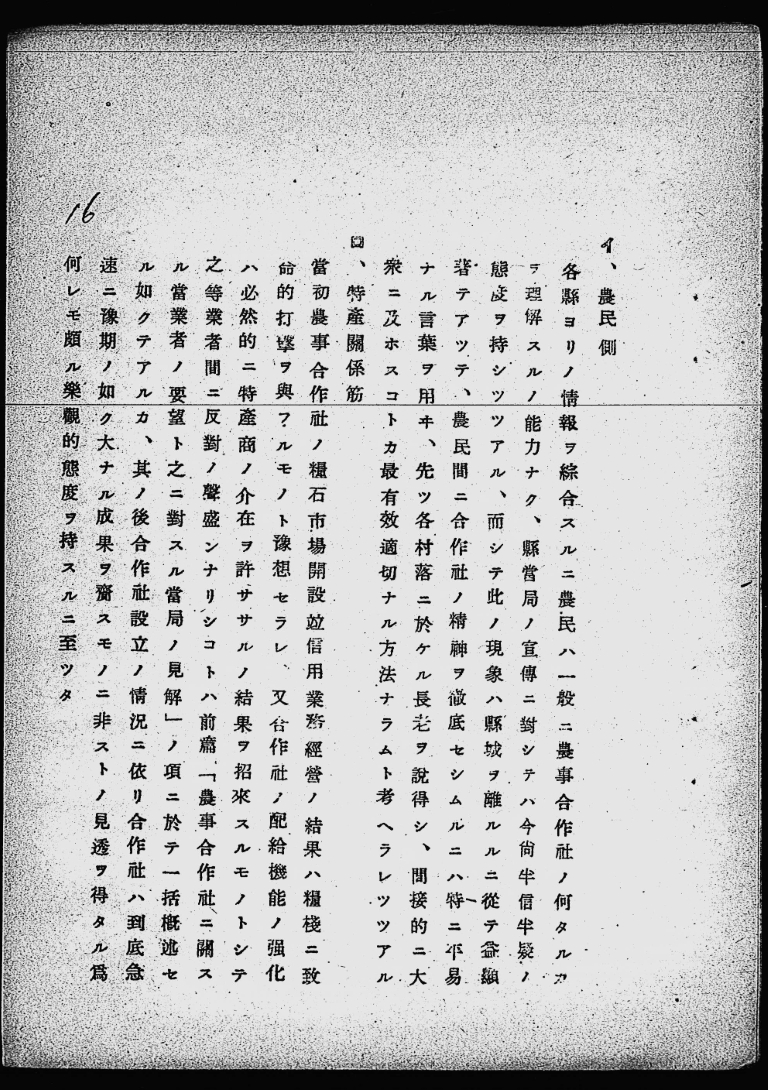 イ、農民側
各縣ヨリノ情報ヲ綜合スルニ農民ハ一般ニ農事合作社ノ何タルカ
ヲ理解スルノ能力ナク、縣當局ノ宣傳ニ對シテハ今尙半信半疑ノ
態度ヲ持シツツアル、而シテ此ノ現象ハ縣城ヲ離ルルニ從テ益顯
著テアツテ、農民間ニ合作社ノ精神ヲ徹底セシムルニハ特ニ平易
ナル言葉ヲ用ヰ、先ツ各村落ニ於ケル長老ヲ說得シ、間接的ニ大
衆ニ及ホスコトカ最有效適切ナル方法ナラムト考ヘラレツツアル
ロ、特產關係筋
當初農事合作社ノ糧石市場開設竝信用業務經營ノ結果ハ糧棧ニ致
命的打擊ヲ與フルモノト豫想セラレ、又合作社ノ配給機能ノ强化
ハ必然的ニ特產商ノ介在ヲ許ササルノ結果ヲ招來スルモノトシテ
之等業者間ニ反對ノ聲盛ンナリシコトハ前扁「農事合作社ニ關ス
ル當業者ノ要望ト之ニ對スル當局ノ見解」ノ項ニ於テ一括槪述セ
ル如クテアルカ、其ノ後合作社設立ノ情況ニ依リ合作社ハ到底急
速ニ豫期ノ如ク大ナル成果ヲ齎スモノニ非ストノ見透ヲ得タル爲
何レモ頗ル樂觀的態度ヲ持スルニ至ツタ
16